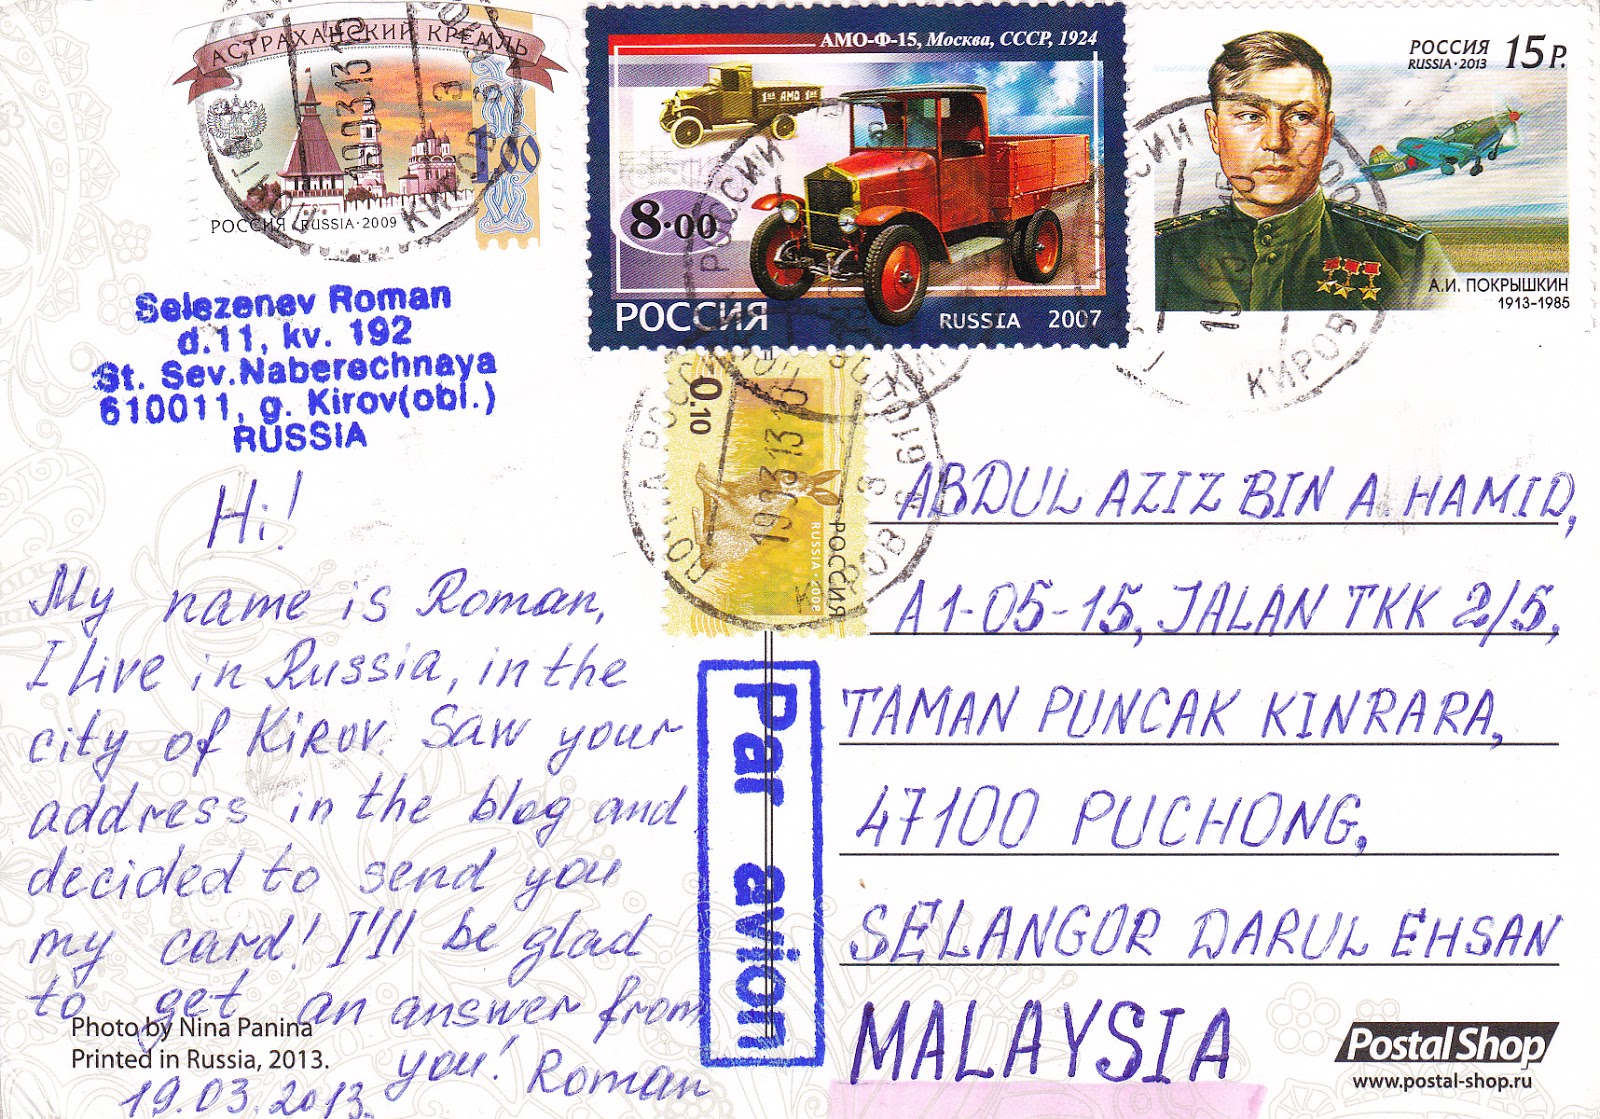 АСТРАХАНСКИЙ КРЕМЛЬ
1.00
РОССИЯ RUSSIA·2009
АМО-Ф-15, Москва, СССР, 1924
1ый АМО 1ый
8·00
РОССИЯ
RUSSIA 2007
РОССИЯ
RUSSIA·2013
15 Р.
А.И. ПОКРЫШКИН
1913-1985
КИРОВ
РОССИИ
19 03 13 10
КИРОВ
0.10
РОССИЯ
RUSSIA·2008
Selezenev Roman
d.11, kv. 192
St. Sev.Naberechnaya
610011, g. Kirov(obl.)
RUSSIA
Hi!
My name is Roman,
I live in Russia, in the
city of Kirov. Saw your
address in the blog and
decided to send you
my card! I'll be glad
to get an answer from
you! Roman
19.03.2013.
Photo by Nina Panina
Printed in Russia, 2013.
Par avion
ABDUL AZIZ BIN A. HAMID,
A1-05-15, JALAN TKK 2/5,
TAMAN PUNCAK KINRARA,
47100 PUCHONG,
SELANGOR DARUL EHSAN
MALAYSIA
Postal Shop
www.postal-shop.ru